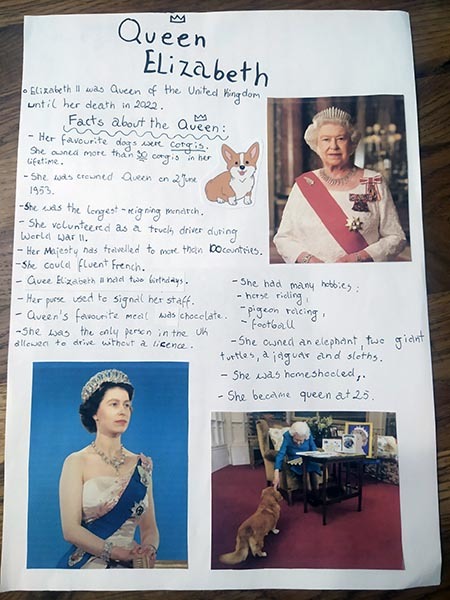 Queen
Elizabeth
Elizabeth II was Queen of the United Kingdom
until her death in 2022.
Facts about the Queen:
- Her favourite dogs were corgis.
She owned more than 30 corgis in her
lifetime.
- She was crowned Queen on 2 june
1953.
- She was the longest-reigning monarch.
- She volunteered as a truck driver during
World War II.
- Her Majesty has travelled to more than 100 countries.
- She could fluent French.
- Quee Elizabeth II had two birthdays.
- Her purse used to signal her staff.
- Queen's favourite meal was chocolate.
- She was the only person in the UK
allowed to drive without a licence.
- She had many hobbies:
- horse riding,
- pigeon racing,
- football
- She owned an elephant, two giant
turtles, a jaguar and sloths.
- She was homeshooled,.
- She became queen at 25.